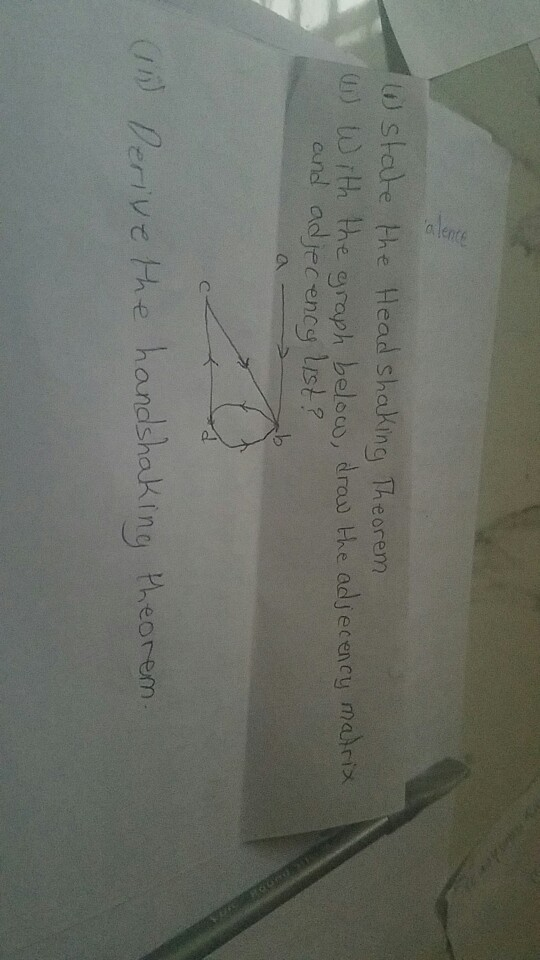 (i) State the Head shaking Theorem
(ii) With the graph below, draw the adjecency matrix
and adjecency list?
a
b
c
d
(iii) Derive the handshaking theorem.
alence